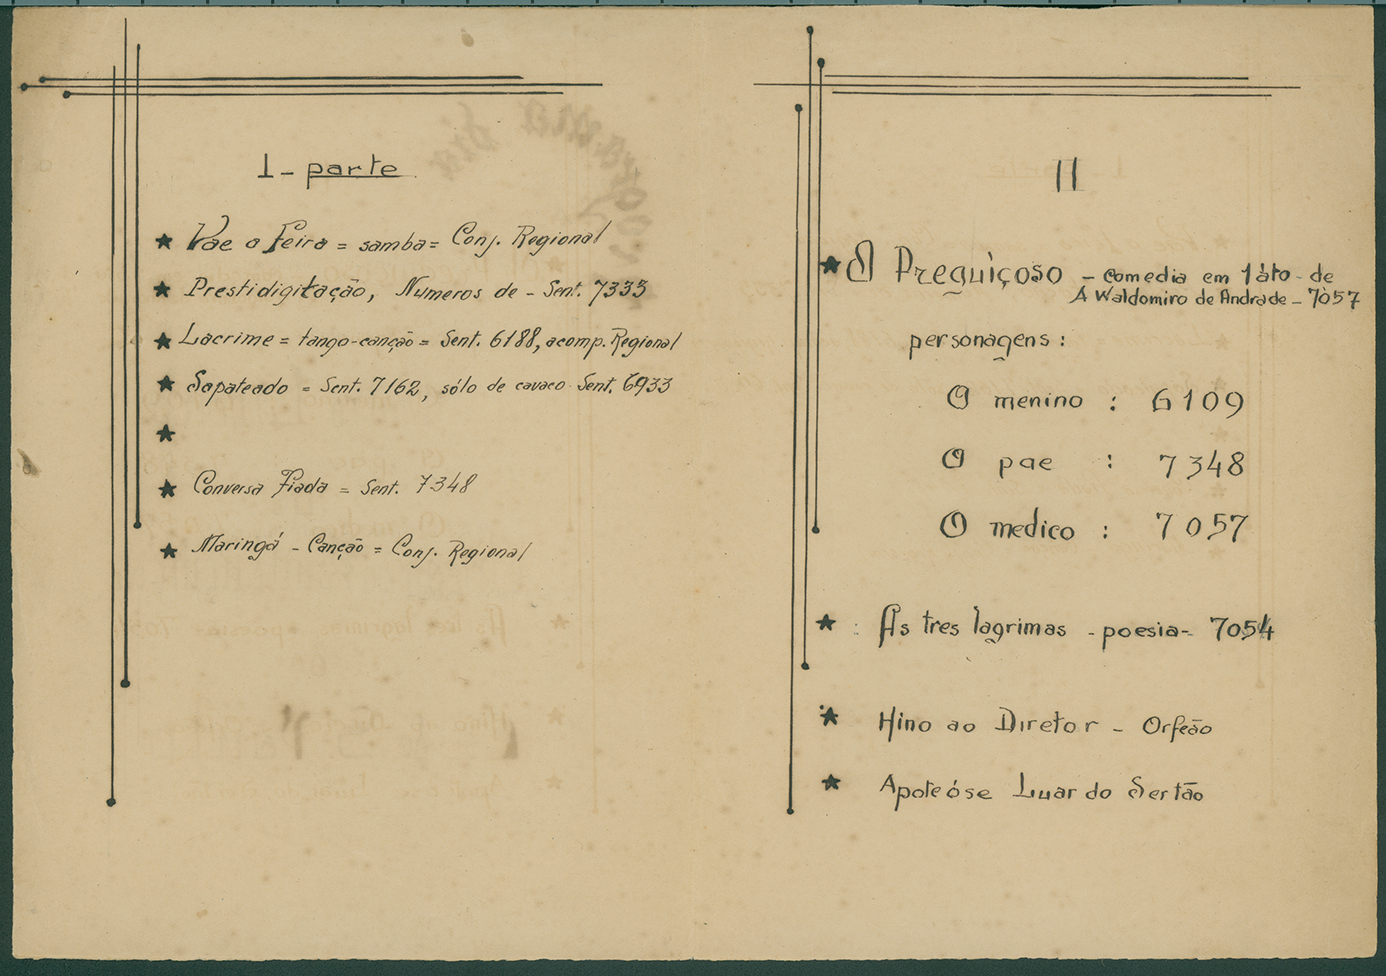 I - parte
Vae a Feira = samba = Conj. Regional
Prestidigitação, Numeros de - Sent. 7335
Lacrime = tango-canção = Sent. 6188, acomp. Regional
Sapateado = Sent. 7162, sólo de cavaco Sent. 6933
Conversa Fiada = Sent. 7348
Maringá - Canção = Conj. Regional
II
O Preguiçoso - comedia em 1 áto - de
A Waldomiro de Andrade - 7057
personagens :
O menino : 6109
O pae : 7348
O medico : 7057
As tres lagrimas - poesia - 7054
Hino ao Diretor - Orfeão
Apoteóse Luar do Sertão